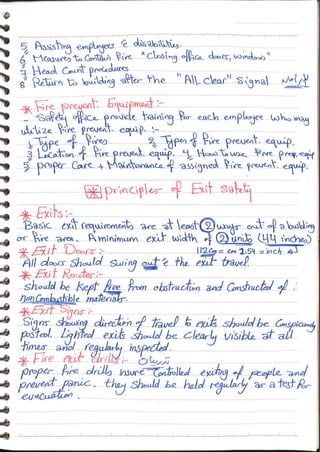 5 Assisting employees c̄ disabilities.
6 Measures to Contain Fire "Closing office doors, windows"
7 Head Count procedures
8 Return to building after the "All Clear" Signal
* Fire prevent. Equipment :-
- Safety office provide training for each employee who may
utilize Fire prevent. equip. :-
1 Type of Fires 2 Types of Fire prevent. equip.
3 Location of Fire prevent. equip. 4 How to use Fire prev. equip
5 proper Care + Maintanance of assigned Fire prevent. equip.
* principles of Exit Safety
* Exits :-
Basic exit requirements are at least 2 ways out of a building
or fire area. A minimum exit width of 2 units (44 inches)
* Exit Doors :- 112 cm = cm 2.54 = inch
All doors should swing out c̄ the exit travel.
* Exit Routes :-
should be Kept free from obstructin and Constructed of
non Combustible materials.
* Exit Signs :-
Signs showing direction of travel to exits should be Conspicuously
posted. Lighted exits should be clearly visible at all
times and regularly inspected.
* Fire exit drills :- تدريبات
proper fire drills insure Controlled exiting of people and
prevent panic. they should be held regularly as a test for
evacuation.